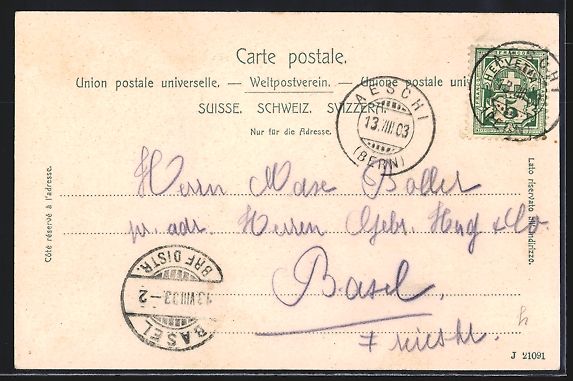 Carte postale.
Union postale universelle. — Weltpostverein. — Unione postale uni
SUISSE. SCHWEIZ. SVIZZERA.
Nur für die Adresse.
HELVETIA
5
AESCHI
13.VIII.03
(BERN)
Côté réservé à l'adresse.
Lato riservato all'indirizzo.
Herrn Max Boller
pr. adr. Herren Gebr. Hug & Co.
Basel
BRF. DISTR.
13.VIII.03.-2
BASEL
J 21091